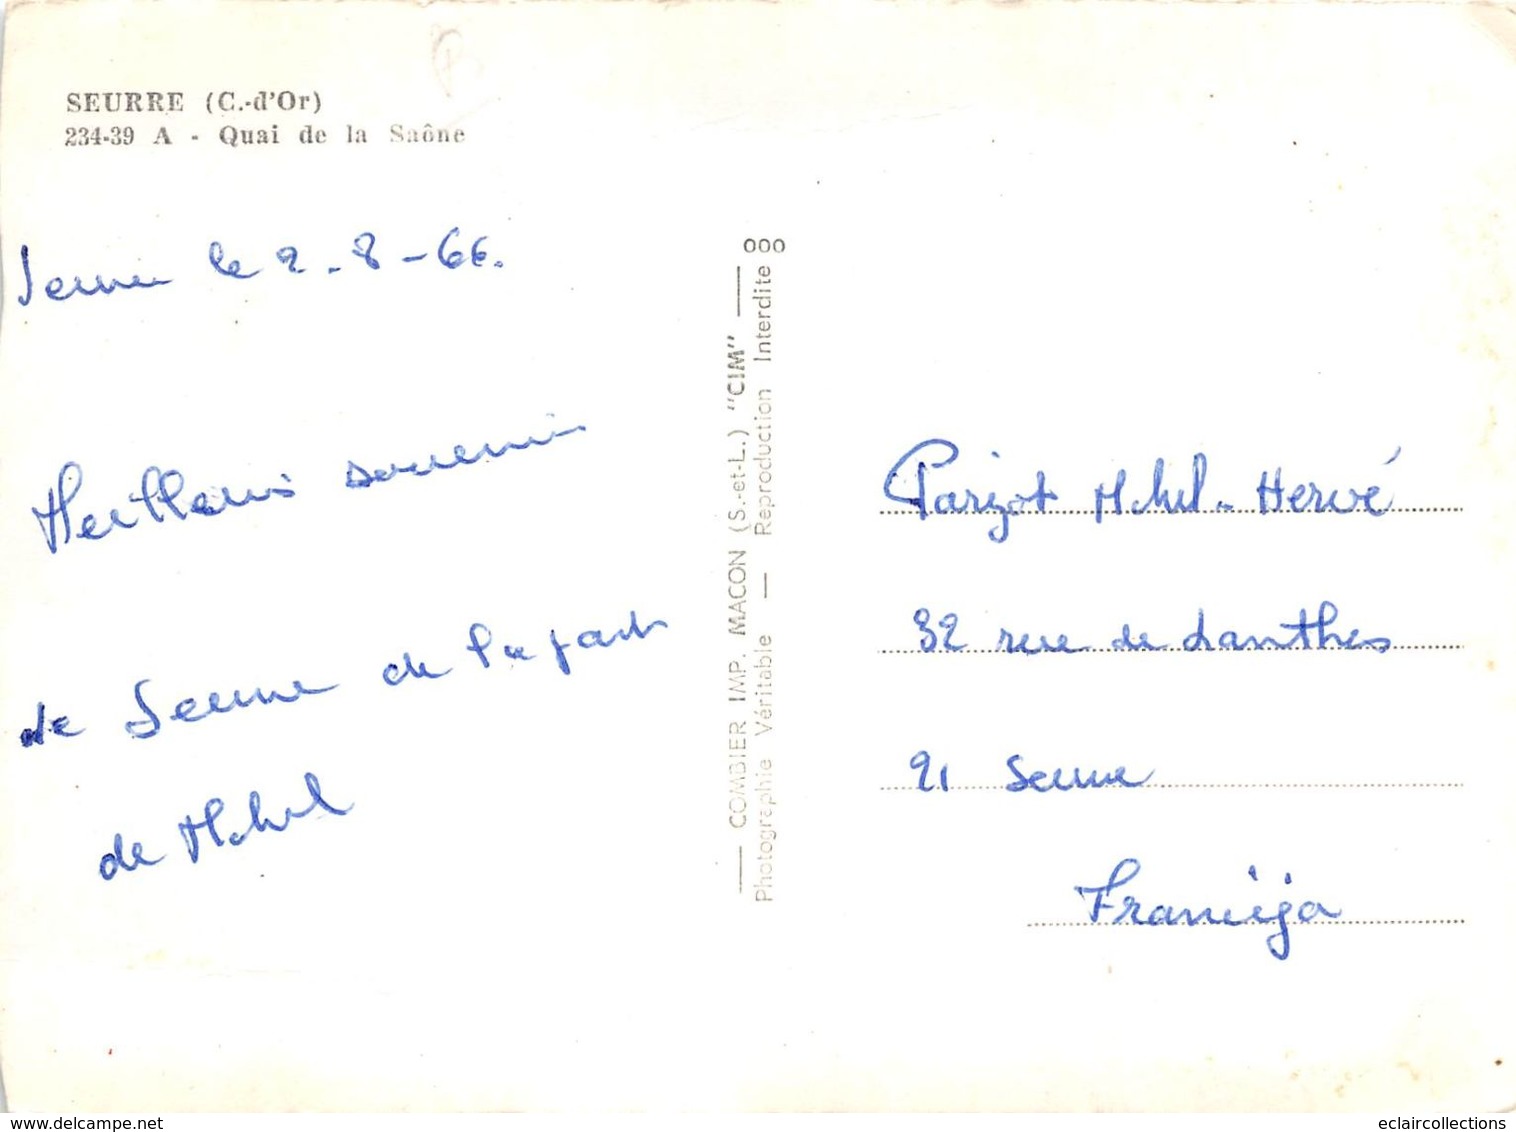 SEURRE (C.-d'Or)
234-39 A - Quai de la Saône
Seurre le 2-8-66.
Meilleurs souvenir
de Seurre de la part
de Michel
COMBIER IMP. MACON (S.-et-L.) "CIM"
Photographie Véritable — Reproduction Interdite
Parizot Michel-Hervé
32 rue de Lanthes
21 Seurre
eclaircollections